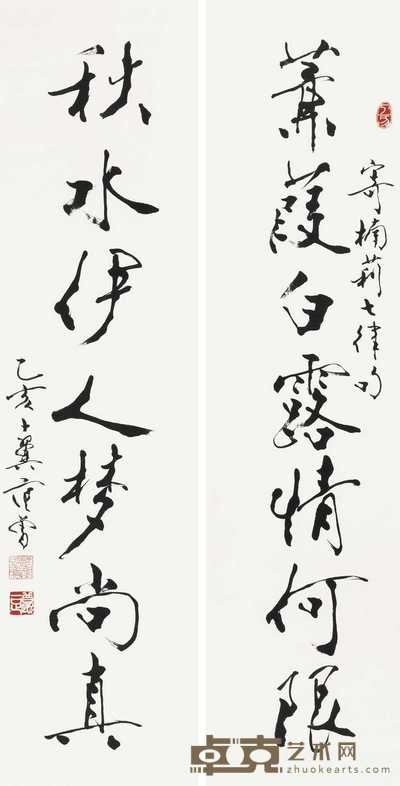 寄楠莉七律句
蒹葭白露情何限
秋水伊人梦尚真
乙亥十翼范曾
卓克艺术网
www.zhuokearts.com